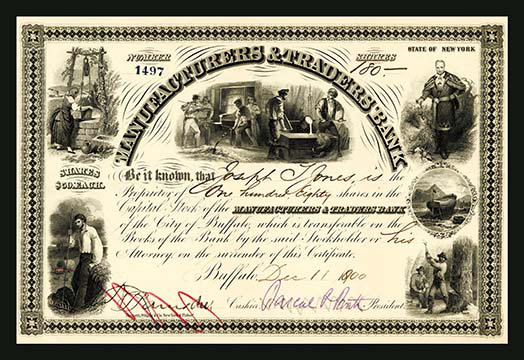 NUMBER
1497
MANUFACTURERS & TRADERS' BANK
SHARES
180.—
STATE OF NEW YORK
SHARES
$50 EACH.
Be it known, that Joseph T Jones, is the
Proprietor of One hundred Eighty shares in the
Capital Stock of the MANUFACTURERS & TRADERS BANK
of the City of Buffalo, which is transferable on the
Books of the Bank by the said Stockholder or his
Attorney on the surrender of this Certificate.
Buffalo, Dec 11 1900
Cashier
President